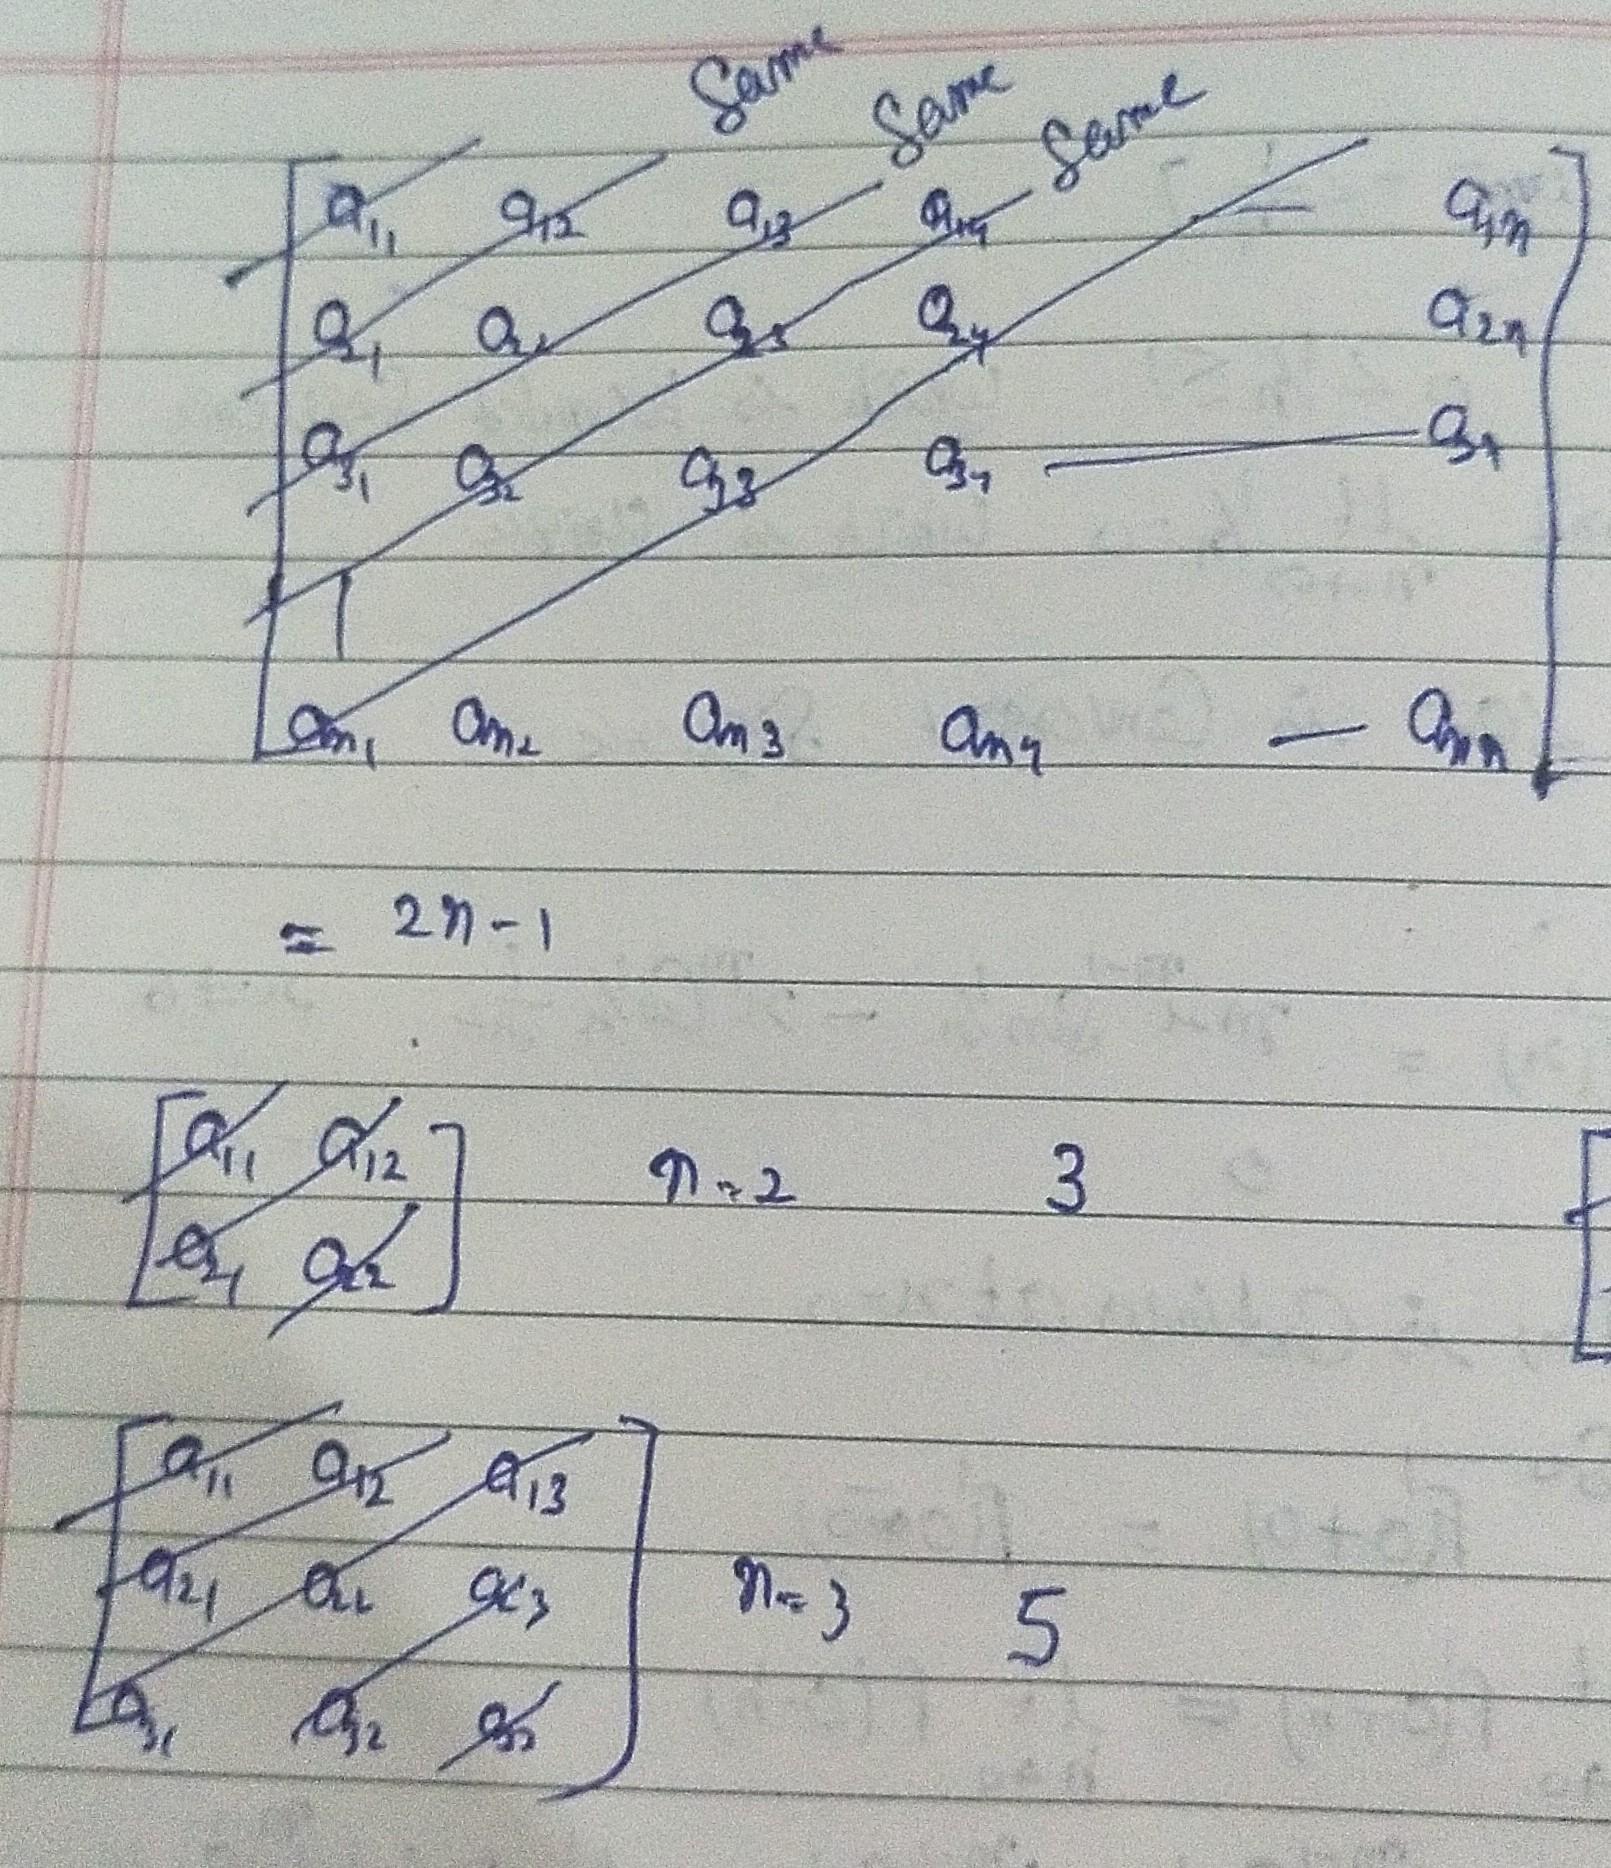 Same Same Same
a11 a12 a13 a14 — a1n
a21 a2 a23 a24 a2n
a31 a32 a33 a34 — a3n
am1 am2 am3 am4 — amn
= 2n-1
a11 a12
n=2 3
a21 a22
a11 a12 a13
a21 a22 a23
n=3 5
a31 a32 a33